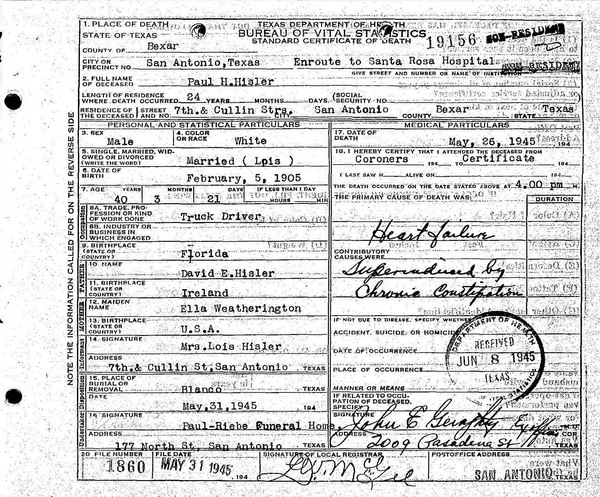 1. PLACE OF DEATH
STATE OF TEXAS
COUNTY OF Bexar
TEXAS DEPARTMENT OF HEALTH
BUREAU OF VITAL STATISTICS
STANDARD CERTIFICATE OF DEATH
19156
NON-RESIDENT
CITY OR PRECINCT NO. San Antonio, Texas Enroute to Santa Rosa Hospital
GIVE STREET AND NUMBER OR NAME OF INSTITUTION
NON RESIDENT
2. FULL NAME OF DECEASED Paul H. Hisler
LENGTH OF RESIDENCE WHERE DEATH OCCURRED 24 YEARS MONTHS DAYS (SOCIAL SECURITY NO.
RESIDENCE OF THE DECEASED STREET AND NO. 7th. & Cullin Strs. CITY San Antonio COUNTY Bexar STATE Texas
PERSONAL AND STATISTICAL PARTICULARS
3. SEX Male
4. COLOR OR RACE White
5. SINGLE, MARRIED, WIDOWED OR DIVORCED (WRITE THE WORD) Married ( Lois )
6. DATE OF BIRTH February, 5, 1905
7. AGE YEARS 40 MONTHS 3 DAYS 21 IF LESS THAN 1 DAY HOURS MIN.
8A. TRADE, PROFESSION OR KIND OF WORK DONE Truck Driver
8B. INDUSTRY OR BUSINESS IN WHICH ENGAGED
9. BIRTHPLACE (STATE OR COUNTRY) Florida
10. NAME David E. Hisler
11. BIRTHPLACE (STATE OR COUNTRY) Ireland
12. MAIDEN NAME Ella Weatherington
13. BIRTHPLACE (STATE OR COUNTRY) U.S.A.
14. SIGNATURE Mrs. Lois Hisler
ADDRESS 7th. & Cullin St, San Antonio TEXAS
15. PLACE OF BURIAL OR REMOVAL Blanco TEXAS
DATE May, 31, 1945 194
16 SIGNATURE Paul-Riebe Funeral Home
ADDRESS 177 North St, San Antonio TEXAS
MEDICAL PARTICULARS
17. DATE OF DEATH May, 26, 1945 194
18. I HEREBY CERTIFY THAT I ATTENDED THE DECEASED FROM
Coroners 194 TO Certificate 194
I LAST SAW H ALIVE ON 194
THE DEATH OCCURRED ON THE DATE STATED ABOVE AT 4.00 pm. M.
THE PRIMARY CAUSE OF DEATH WAS: DURATION
Heart failure
CONTRIBUTORY CAUSES WERE
Superinduced by
Chronic Constipation
IF NOT DUE TO DISEASE, SPECIFY WHETHER
ACCIDENT, SUICIDE, OR HOMICIDE
DATE OF OCCURRENCE
PLACE OF OCCURRENCE
MANNER OR MEANS
IF RELATED TO OCCUPATION OF DECEASED, SPECIFY
DEPARTMENT OF HEALTH
RECEIVED
JUN 8 1945
TEXAS
VITAL STATISTICS
SIGNATURE John E
ADDRESS 2009 Pasadena St TEXAS
20 FILE NUMBER 1860
FILE DATE MAY 31 1945 194
SIGNATURE OF LOCAL REGISTRAR
POSTOFFICE ADDRESS
SAN ANTONIO TEXAS
NOTE THE INFORMATION CALLED FOR ON THE REVERSE SIDE
Occupation
FATHER
MOTHER
Informant
Disposition